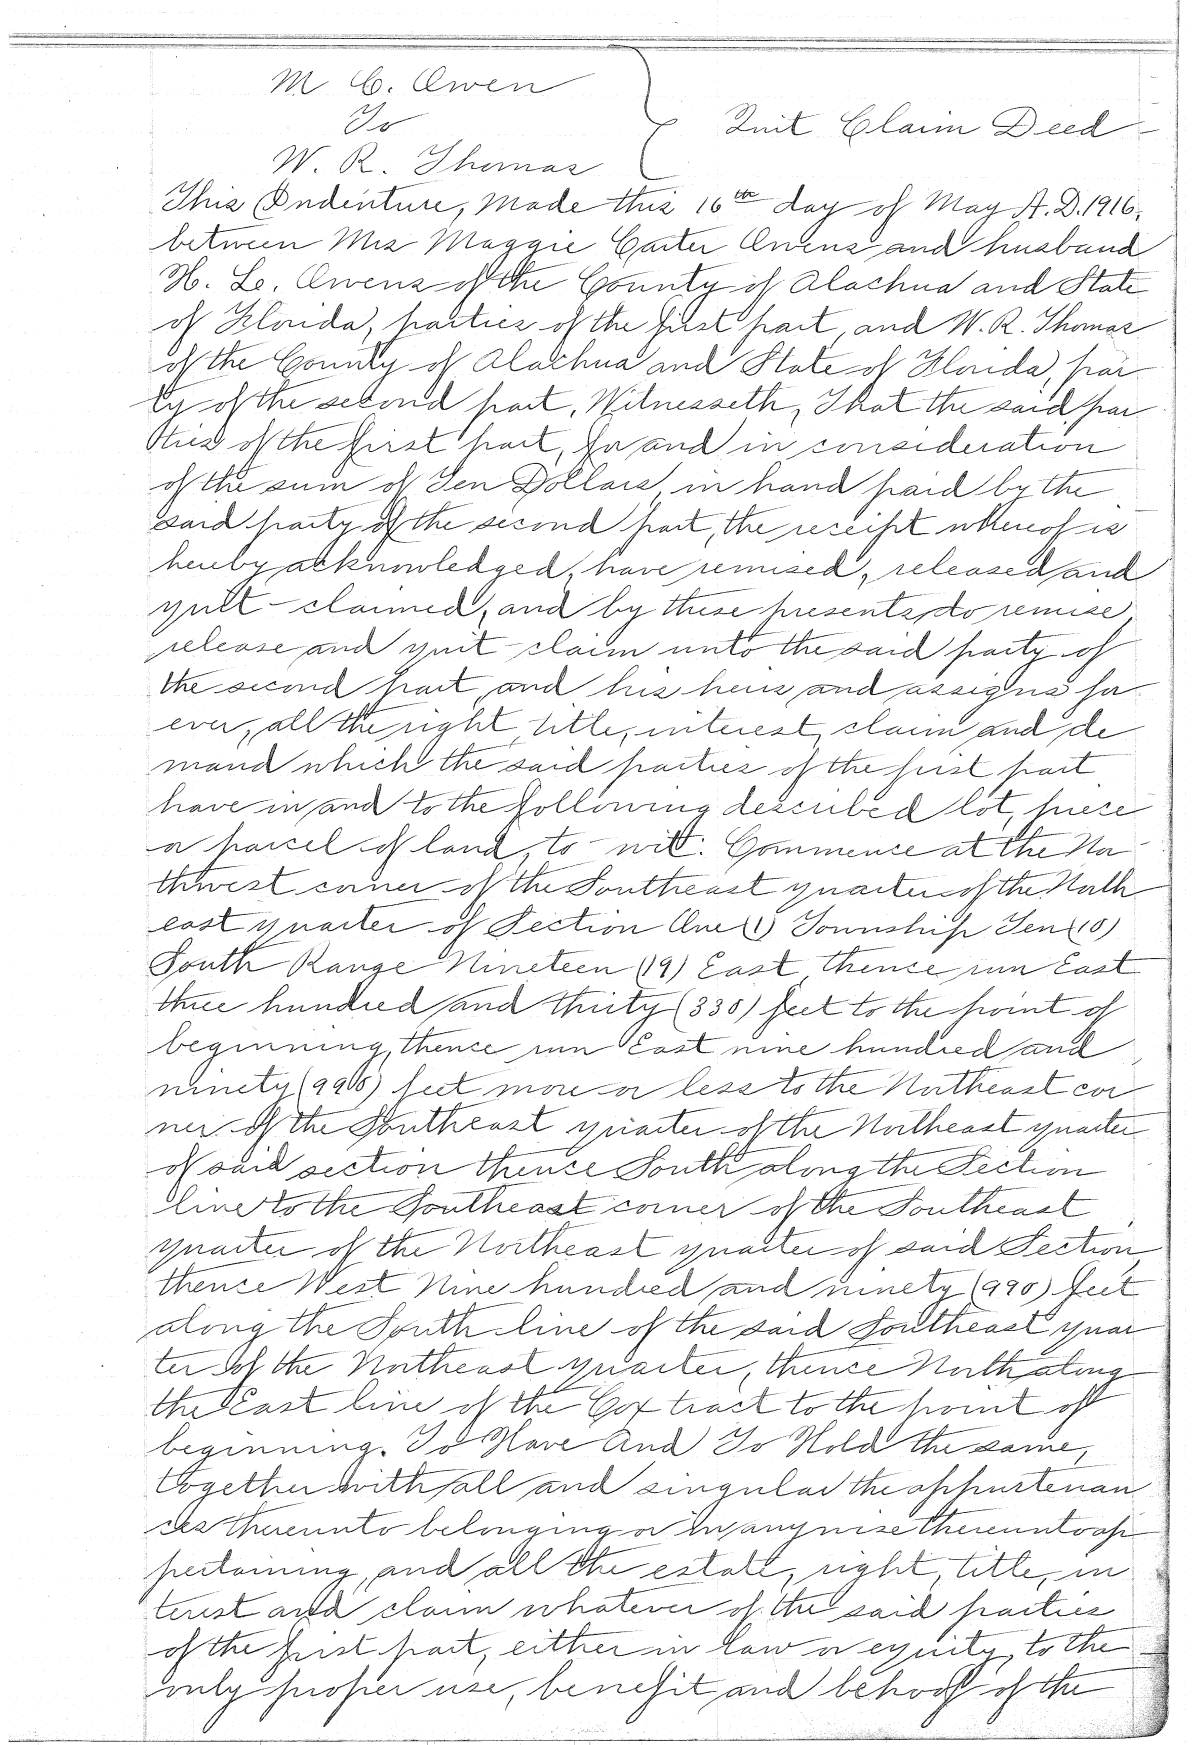 M C. Owen
To
Quit Claim Deed
W. R. Thomas
This Indenture, Made this 16th day of May A.D. 1916,
between Mrs Maggie Carter Owens and husband
H. L. Owens of the County of Alachua and State
of Florida, parties of the first part, and W. R. Thomas
of the County of Alachua and State of Florida, par
ty of the second part, Witnesseth, That the said par
ties of the first part, for and in consideration
of the sum of Ten Dollars, in hand paid by the
said party of the second part, the receipt whereof is
hereby acknowledged, have remised, released and
quit-claimed, and by these presents do remise,
release and quit-claim unto the said party of
the second part, and his heirs and assigns for
ever, all the right, title, interest, claim and de
mand which the said parties of the first part
have in and to the following described lot, piece
or parcel of land, to-wit: Commence at the Nor
thwest corner of the Southeast quarter of the North
east quarter of Section One (1) Township Ten (10)
South Range Nineteen (19) East, thence run East
three hundred and thirty (330) feet to the point of
beginning, thence run East nine hundred and
ninety (990) feet more or less to the Northeast cor
ner of the Southeast quarter of the Northeast quarter
of said section thence South along the Section
line to the Southeast corner of the Southeast
quarter of the Northeast quarter of said Section,
thence West Nine hundred and ninety (990) feet
along the South line of the said Southeast quar
ter of the Northeast quarter, thence North along
the East line of the Cox tract to the point of
beginning. To Have And To Hold the same,
together with all and singular the appurtenan
ces thereunto belonging or in anywise thereunto ap
pertaining, and all the estate, right, title, in
terest and claim whatever of the said parties
of the first part, either in law or equity, to the
only proper use, benefit and behoof of the